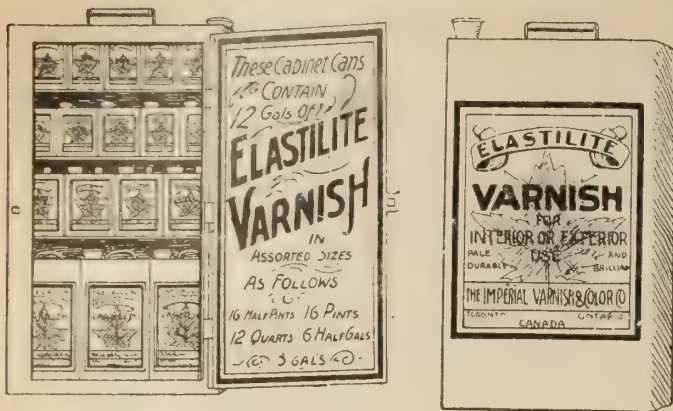 These Cabinet Cans
CONTAIN
12 Gals Of
ELASTILITE
VARNISH
IN
ASSORTED SIZES
AS FOLLOWS
16 HALF PINTS 16 PINTS
12 QUARTS 6 HALF GALS
3 GALS
ELASTILITE
VARNISH
FOR
INTERIOR OR EXTERIOR
USE
PALE AND
DURABLE
THE IMPERIAL VARNISH & COLOR CO
TORONTO ONTARIO
CANADA